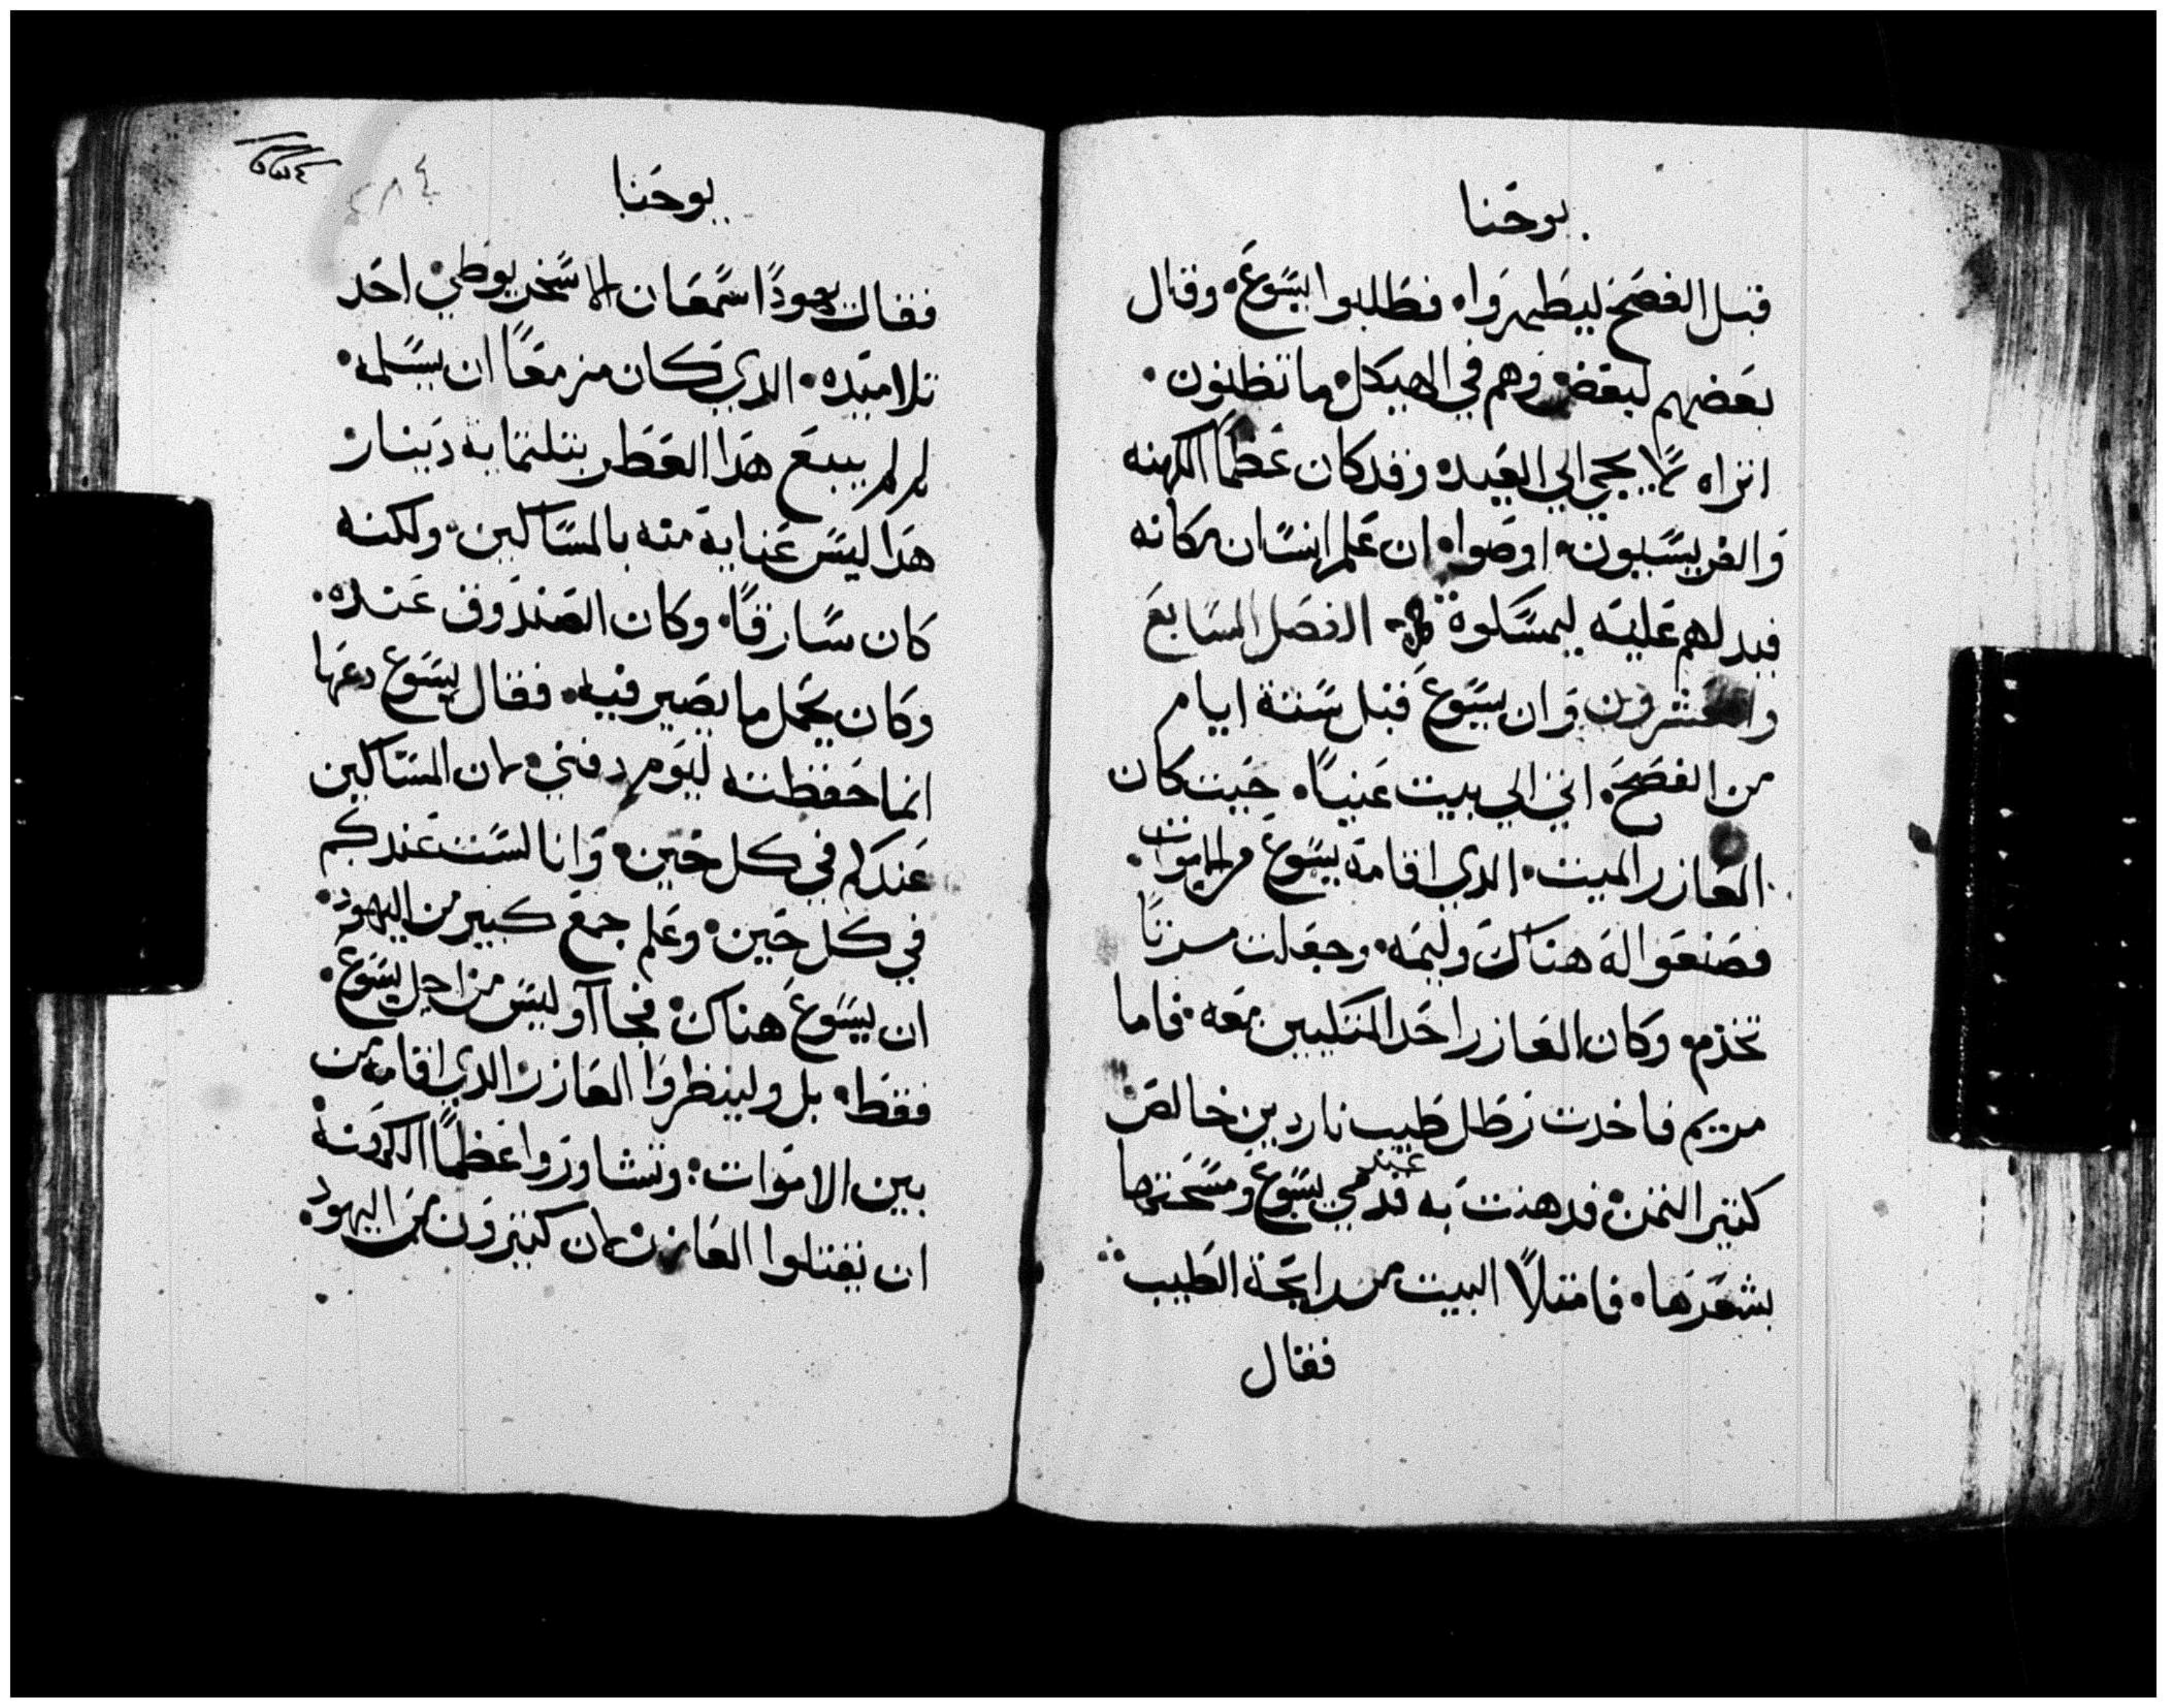 يوحنا
قبل الفصح ليطهروا. فطلبوا يسوع. وقال
بعضهم لبعض وهم في الهيكل ما تظنون.
اتراه لا يجي الي العيد. وقد كان عظما الكهنه
والفريسيون. اوصوا. ان علم انسان مكانه
فيدلهم عليه ليمسكوه الفصل السابع
والعشرون وان يسوع قبل ستة ايام
من الفصح. اتي الي بيت عنيا. حيت كان
العازر الميت. الدي اقامه يسوع من الاموات.
فصنعوا له هناك وليمه. وجعلت مرتا
تخدم. وكان العازر احد المتكيين معه. فاما
مريم فاخدت رطل طيب ناردين خالص
كتير التمن. فدهنت به قدمي يسوع ومسحتهما
بشعرها. فامتلا البيت من رايحة الطيب
فقال
يوحنا
٢٨٤
فقال يهودا سمعان الاسخريوطي. احد
تلاميده. الدي كان مزمعا ان يسلمه.
لم لم يبع هدا العطر بتلتماية دينار
هدا ليس عناية منه بالمساكين. ولكنه
كان سارقا. وكان الصندوق عنده.
وكان يحمل ما يصير فيه. فقال يسوع دعها
انما حفظته ليوم دفني. لان المساكين
عندكم في كل حين. وانا لست عندكم
في كل حين. وعلم جمع كبير من اليهود.
ان يسوع هناك. فجااو ليس من اجل يسوع.
فقط. بل ولينظروا العازر الدي اقامه من
بين الاموات. وتشاوروا عظما الكهنة
ان يقتلوا العازر. لان كتيرون من اليهود.